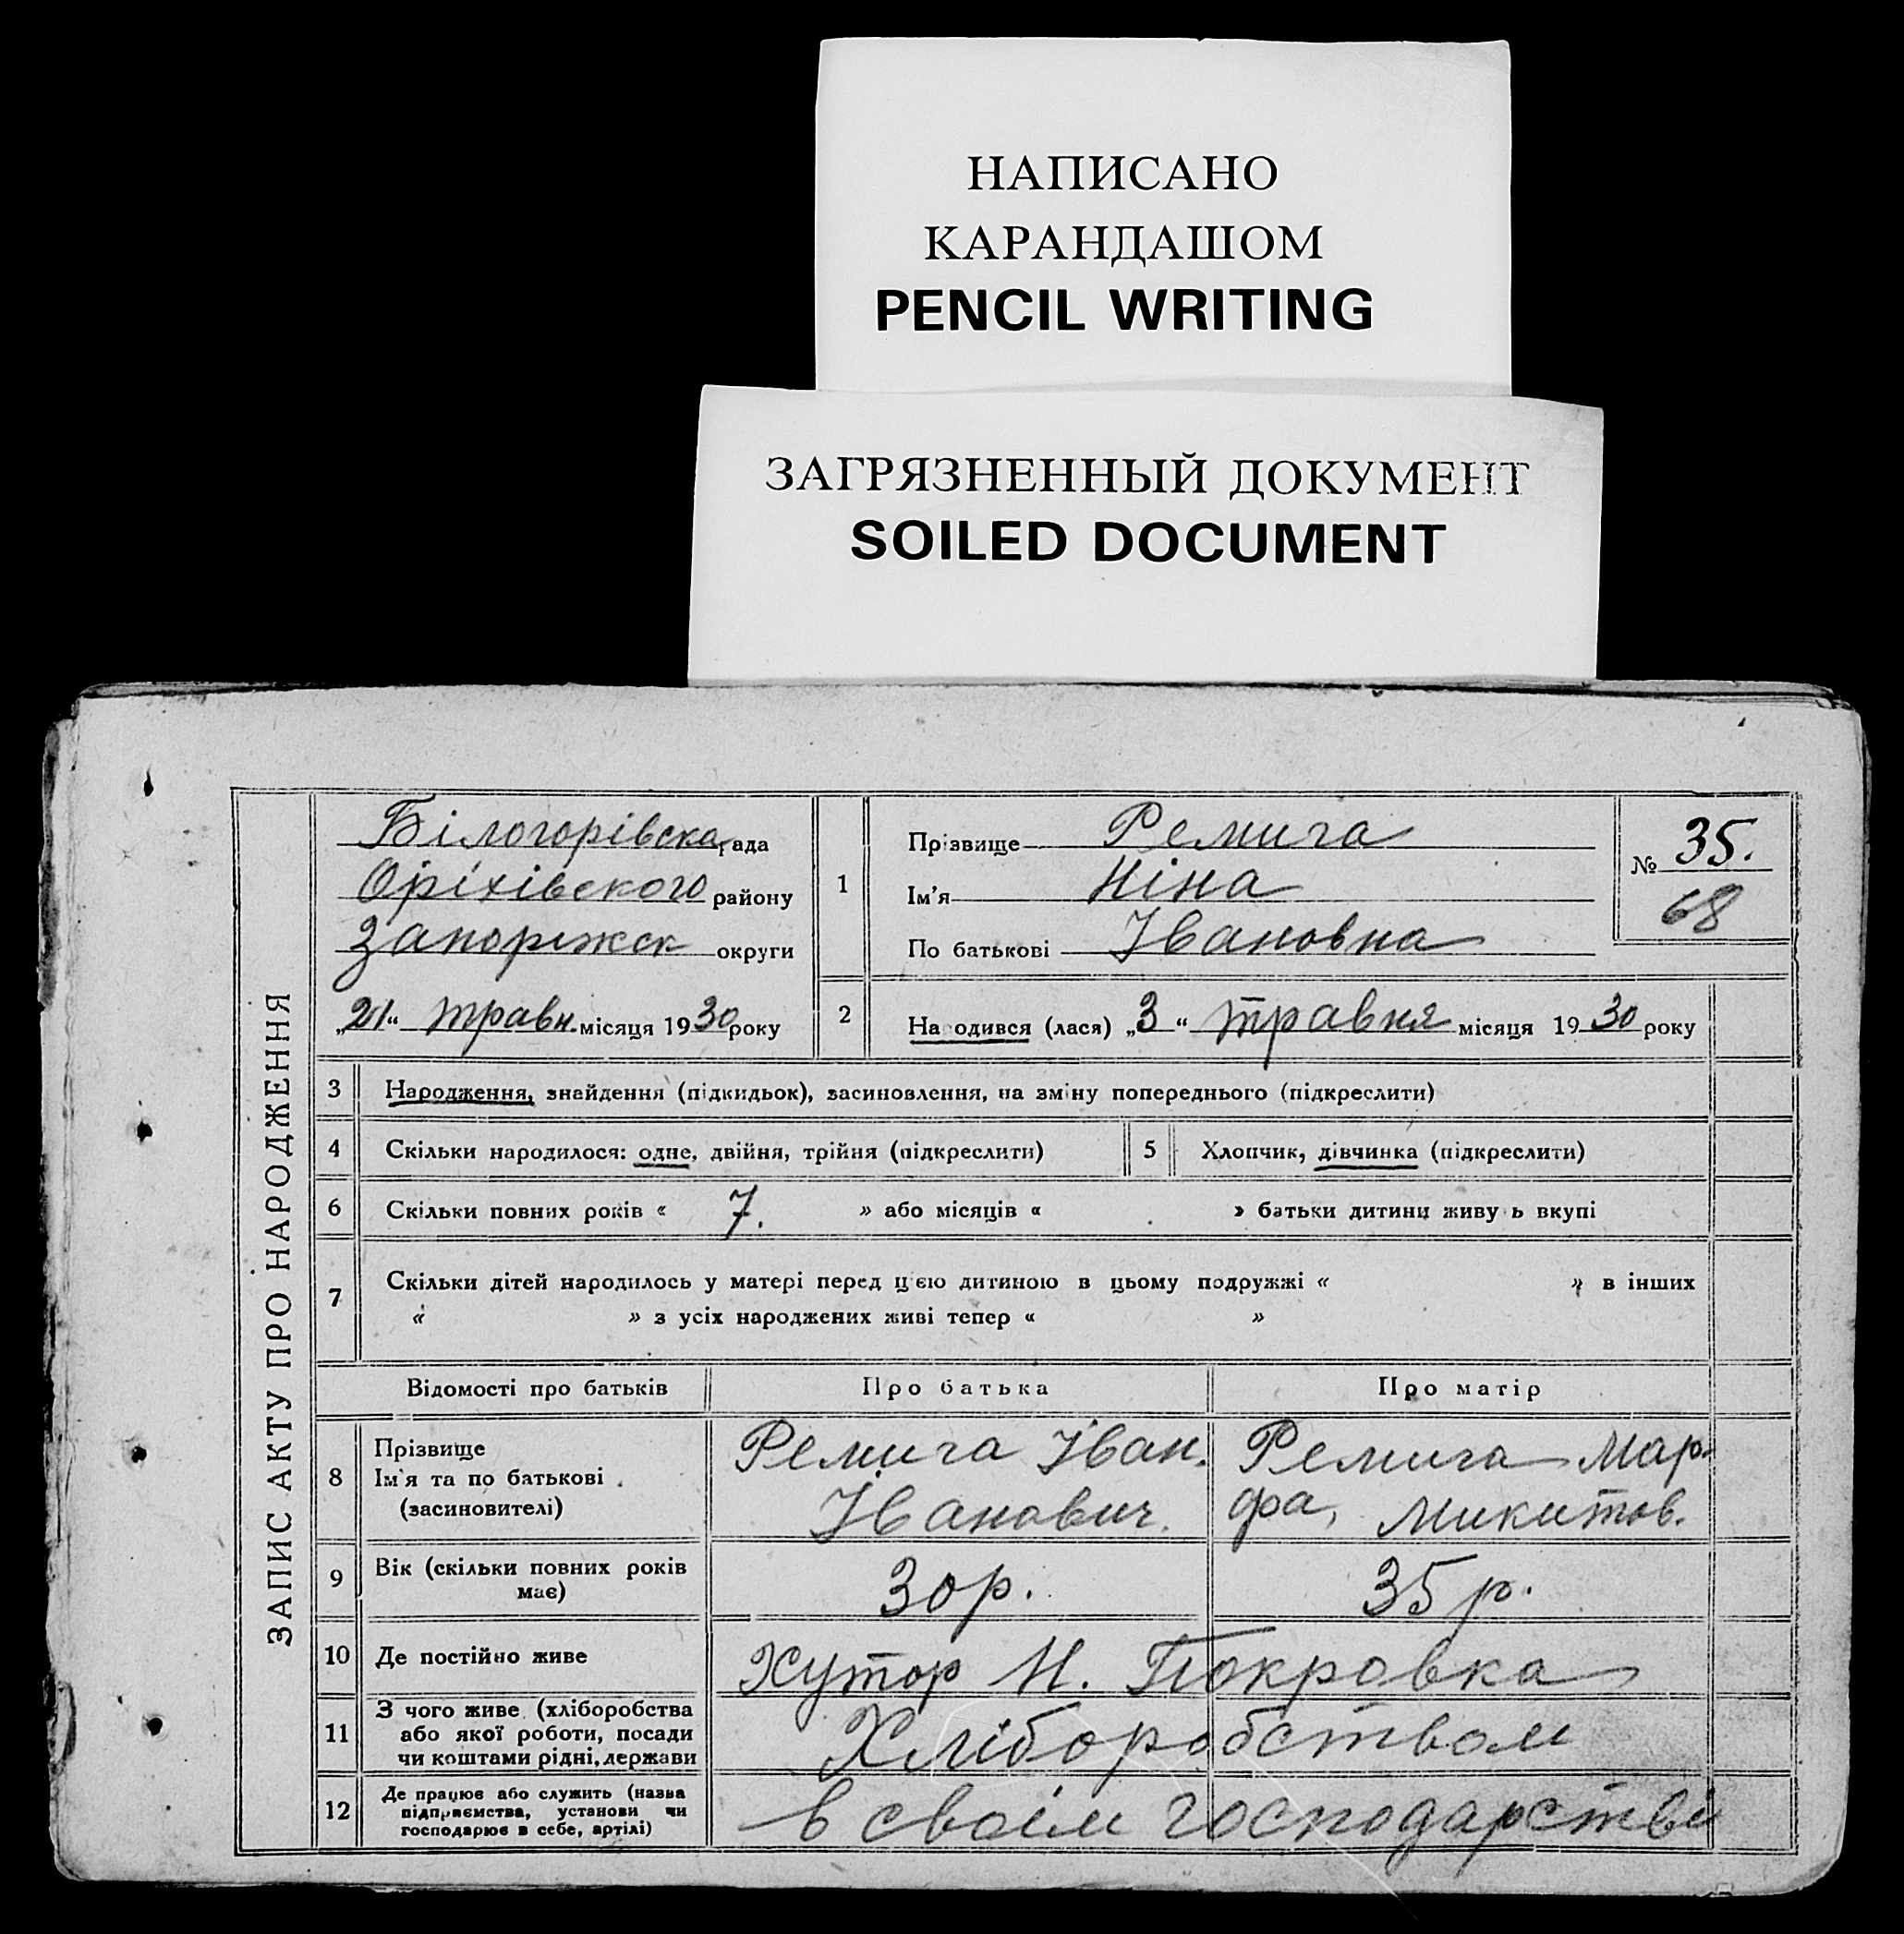 НАПИСАНО
КАРАНДАШОМ
PENCIL WRITING
ЗАГРЯЗНЕННЫЙ ДОКУМЕНТ
SOILED DOCUMENT
ЗАПИС АКТУ ПРО НАРОДЖЕННЯ
Білогорівска рада
Оріхівского району
Запоріжск округи
„21“ травн. місяця 1930 року
1
Прізвище Ремига
Ім'я Ніна
По батькові Івановна
№ 35.
68
2
Народився (лася) „3“ травня місяця 1930 року
3 Народження, знайдення (підкидьок), засиновлення, на зміну попереднього (підкреслити)
4 Скільки народилося: одне, двійня, трійня (підкреслити)
5 Хлопчик, дівчинка (підкреслити)
6 Скільки повних років « 7. » або місяців « » батьки дитини живуть вкупі
7 Скільки дітей народилось у матері перед цією дитиною в цьому подружжі « » в інших
« » з усіх народжених живі тепер « »
Відомості про батьків Про батька Про матір
8 Прізвище
Ім'я та по батькові
(засиновителі)
Ремига Іван.
Іванович.
Ремига Мар-
фа, Микитов.
9 Вік (скільки повних років
має)
30 р. 35 р.
10 Де постійно живе Хутор Н. Покровка
11 З чого живе (хліборобства
або якої роботи, посади
чи коштами рідні, держави
Хліборобством
12 Де працює або служить (назва
підприємства, установи чи
господарює в себе, артілі)
в своїм господарстві